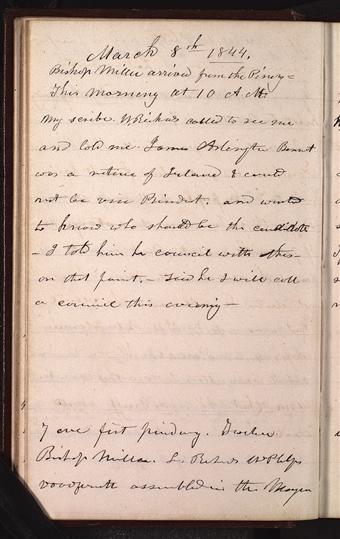 March 8th 1844.
Bishop Miller arrived from the Pinery =
This morning at 10 A.M.
my scribe. W Richards called to see me
and told me James Arlington Bennet
was a native of Ireland & could
not be vice President. and wanted
to know who should be the candidate
- I told him he council with others -
on that point, - said he I will call
a council this evening -
7 eve first presidency.
Bishop Miller. L. Richards W Phelps
Woodworth assembled in the Mayor